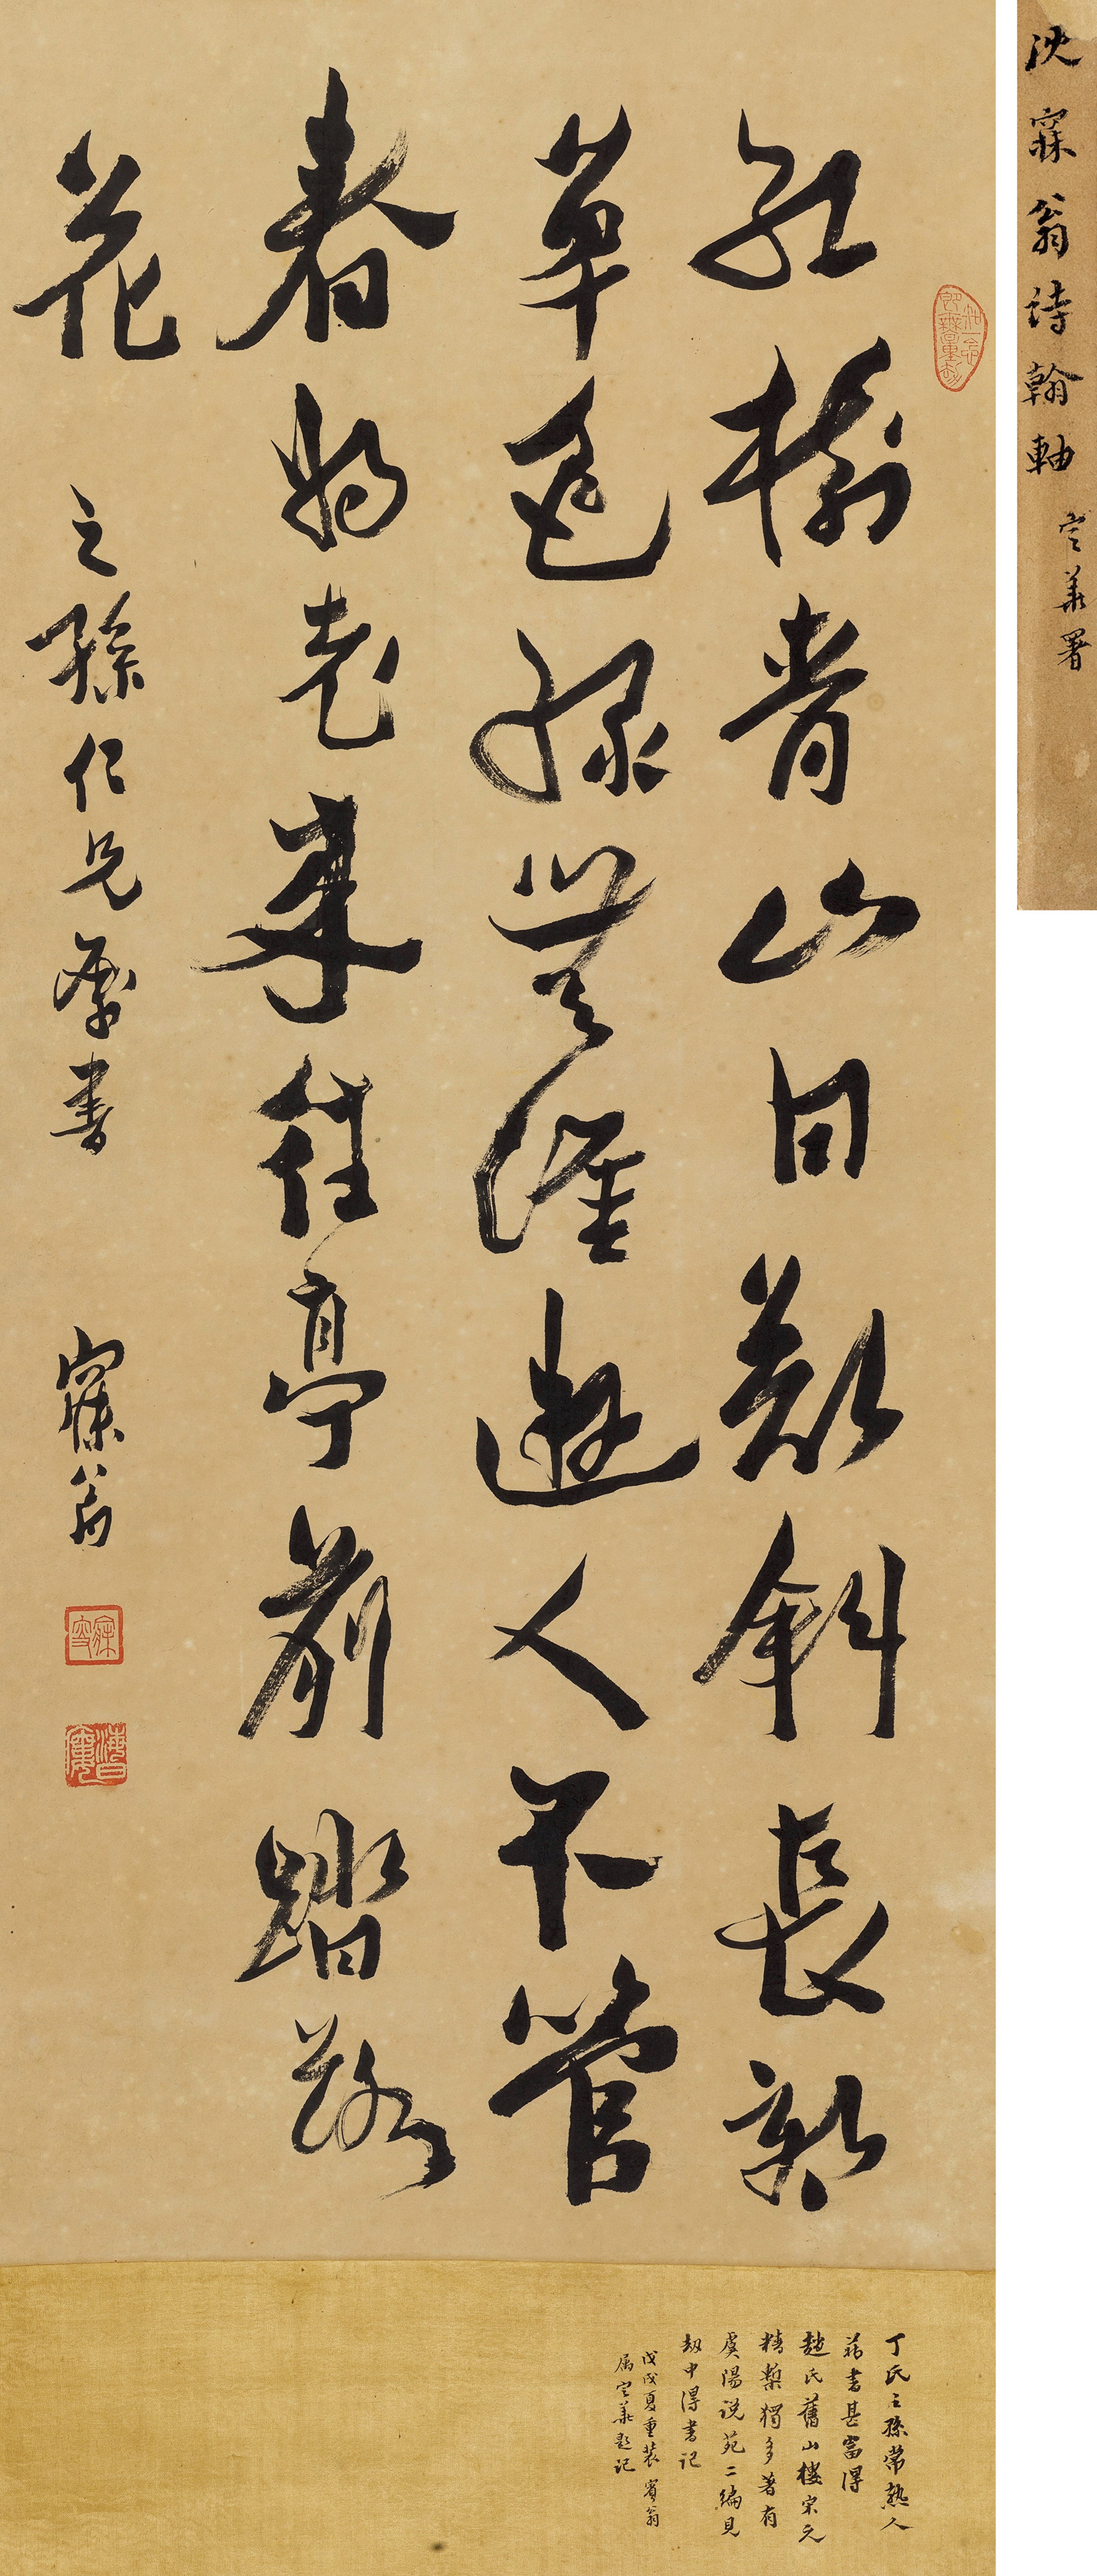 沈寐翁詩翰軸
定華署
紅樹青山日欲斜長郊
草色綠無涯遊人不管
春將老來往亭前踏落
花
之孫仁兄屬書
寐翁
丁氏之孫常熟人
藏書甚富得
趙氏舊山樓宋元
精槧獨多著有
虞陽說苑二編見
劫中得書記
戊戌夏重裝賓翁
屬定華題記